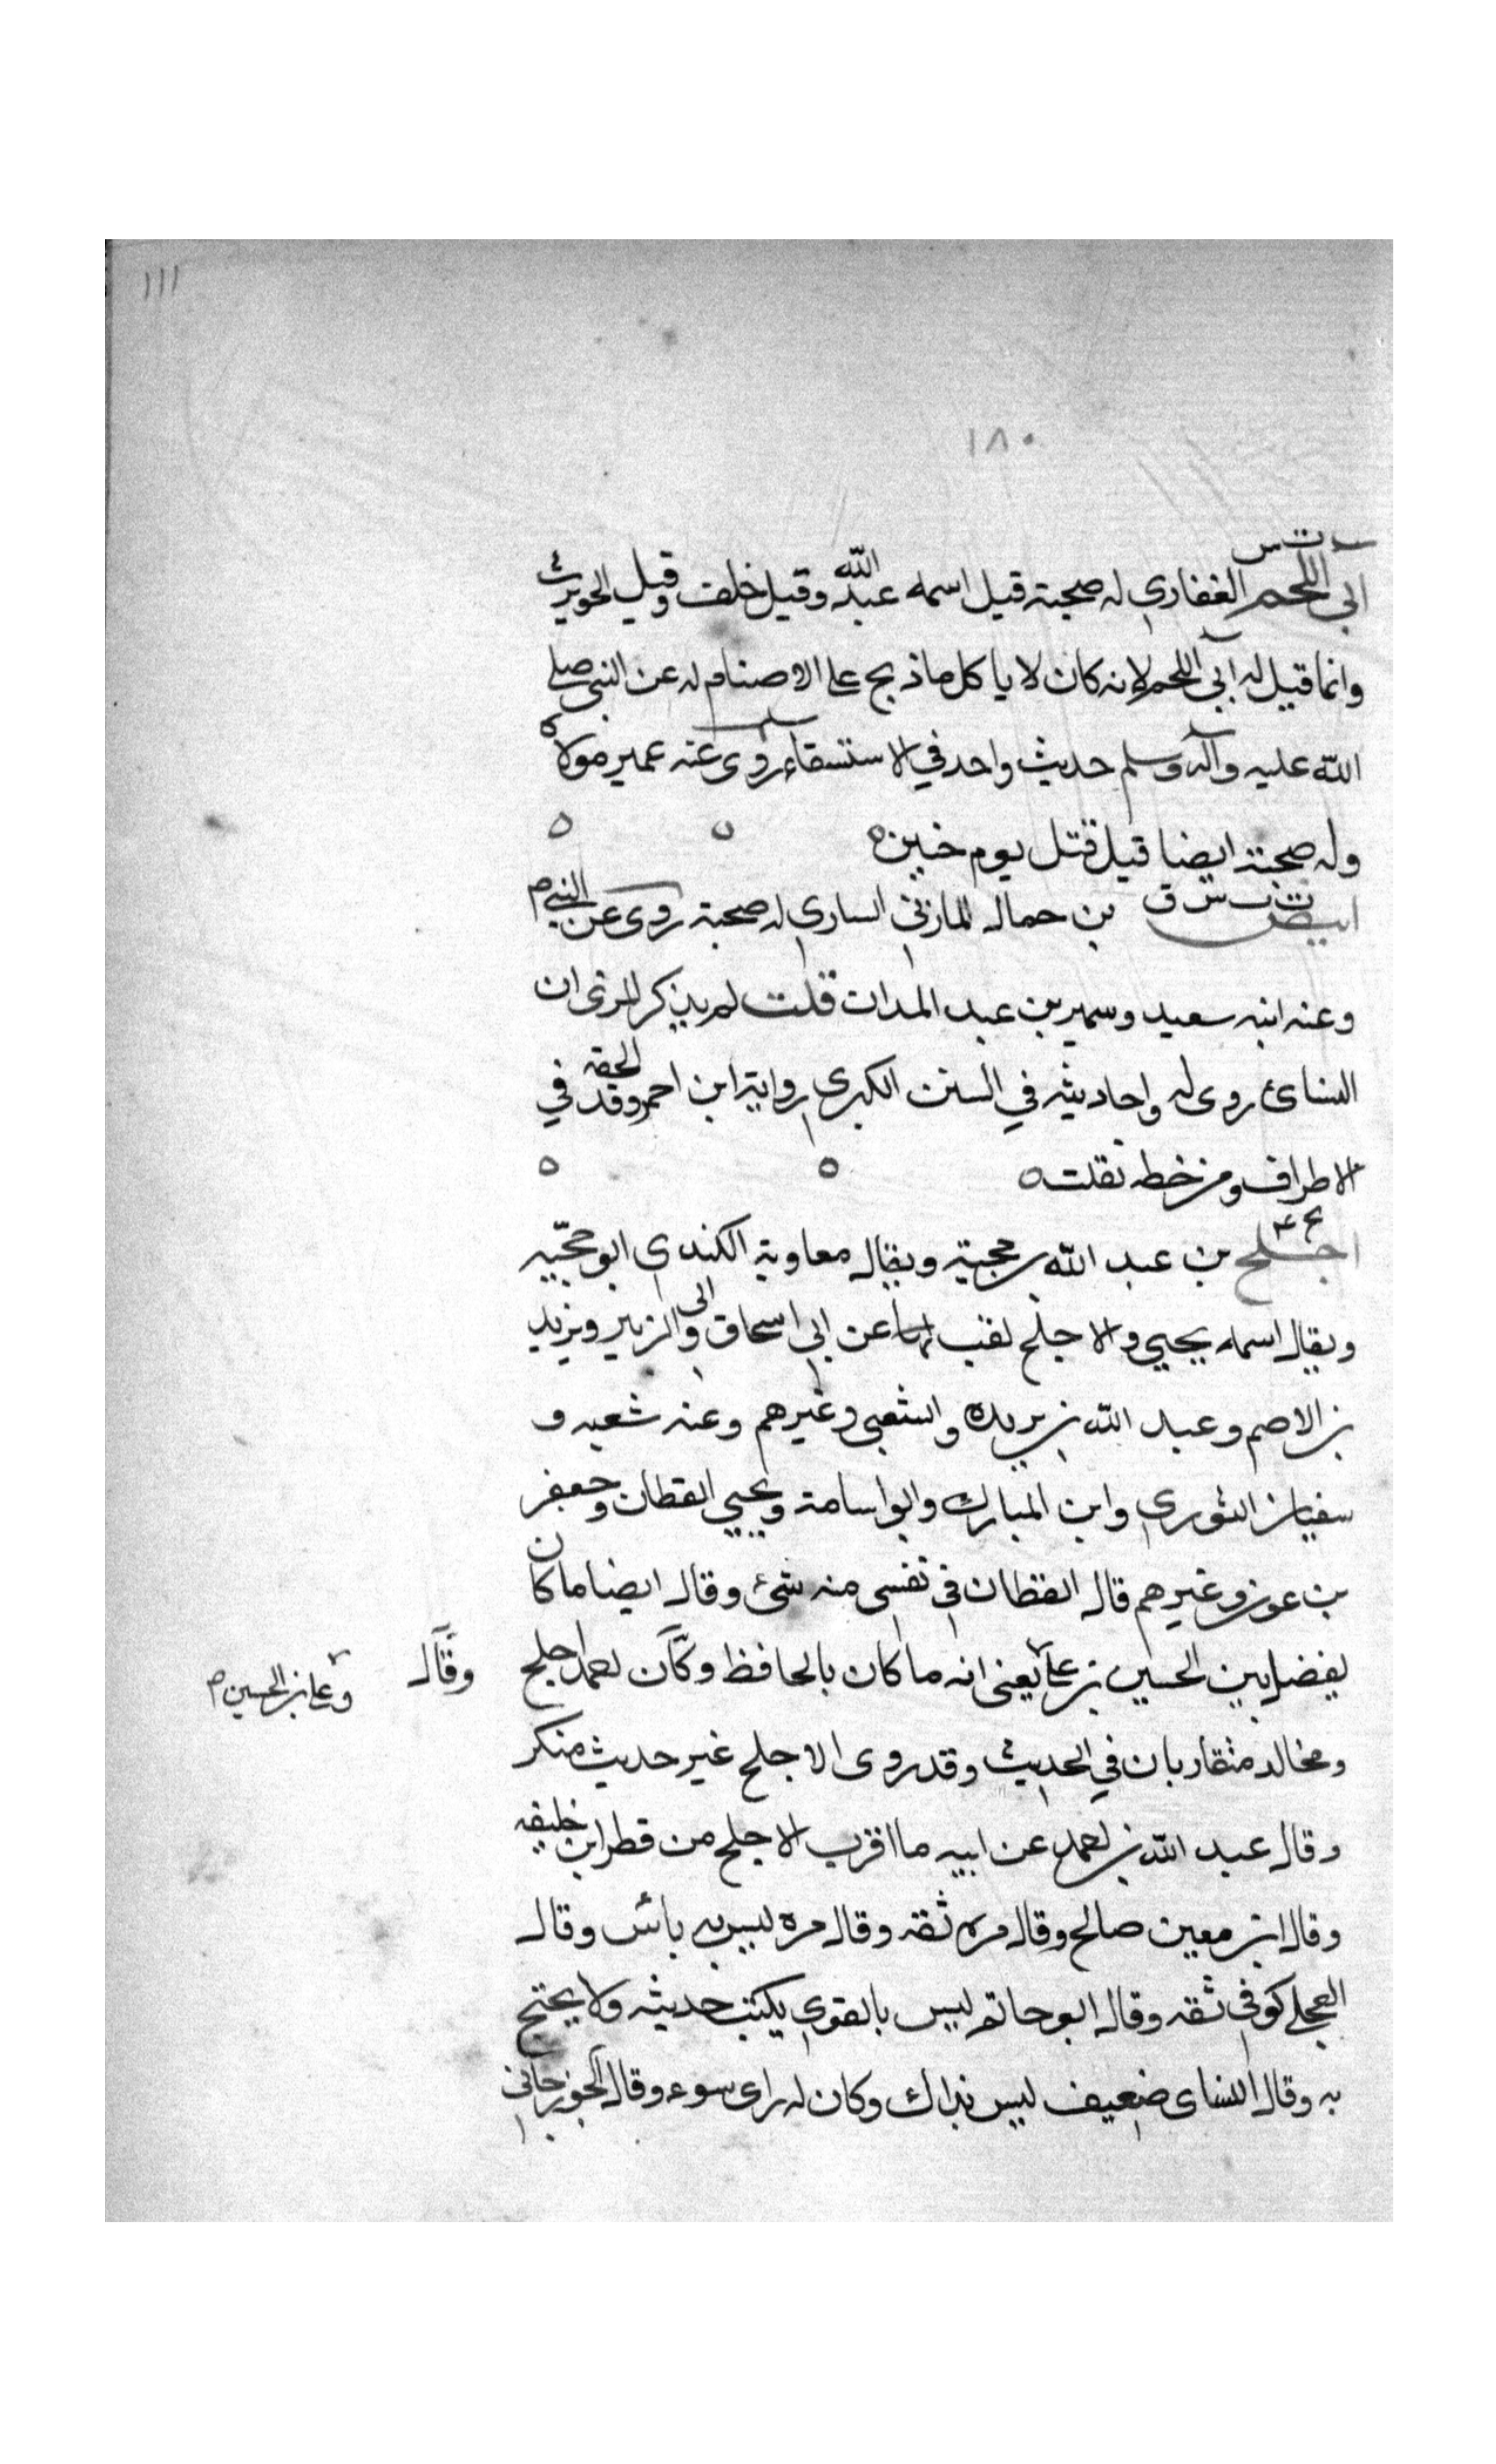 ١١١
١٨٠
ت س
ابى اللحم الغفاري له صحبة قيل اسمه عبد الله وقيل خلف وقيل الحويرث
وانما قيل له آبى اللحم لانه كان لا ياكل ما ذبح على الاصنام له عن النبى صلى
الله عليه وآله وسلم حديث واحد في الاستسقاء روى عنه عمير مولاه
وله صحبة ايضا قيل قتل يوم حنين ه
ابيض بن حمال المازنى الساري له صحبة روى عن النبي م
وعنه ابنه سعيد وسمير بن عبد المدان قلت لم يذكر المزى ان
النسائ روى له واحاديثه في السنن الكبرى رواية ابن احمر وقد الحقه في
الاطراف ومن خطه نقلت ه
اجلح بن عبد الله بن حجية ويقال معاوية الكندي ابو حجّيه
ويقال اسمه يحيى والاجلح لقب عن ابي اسحاق وابى الزبير ويزيد
بن الاصم وعبد الله بن بريده والشعبى وغيرهم وعنه شعبه و
سفيان الثوري وابن المبارك وابو اسامة ويحيى القطان وجعفر
بن عون وغيرهم قال القطان في نفسى منه شئ وقال ايضا ما كان
يفضل بين الحسين بن على يعنى انه ما كان بالحافظ وقال احمد اجلح وقال
وعلى بن الحسين م
ومخالد متقاربان في الحديث وقد روى الاجلح غير حديث منكر
وقال عبد الله بن احمد عن ابيه ما اقرب الاجلح من قطر ابن خليفه
وقال ابن معين صالح وقال مره ثقه وقال مره ليس به بائس وقال
العجلى كوفى ثقه وقال ابو حاتم ليس بالقوى يكتب حديثه ولا يحتج
به وقال النساى ضعيف ليس بذاك وكان له راى سوء وقال الجوزجانى